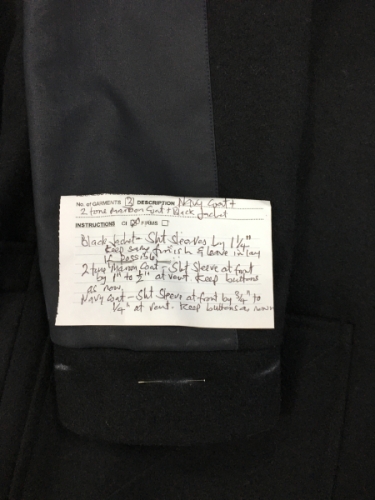 No of GARMENTS 2 DESCRIPTION Navy Coat +
2 tone Maroon Coat + Black Jacket
INSTRUCTIONS CI 20 FIRMS
Black Jacket - Sht Sleeves by 1 1/4"
Keep same finish & leave in lay
If possible
2 tone Maroon Coat - Sht Sleeve at front
by 1" to 1/2" at vent keep buttons
as now.
Navy Coat - Sht Sleeve at front by 3/4" to
1/4" at vent. Keep buttons as now